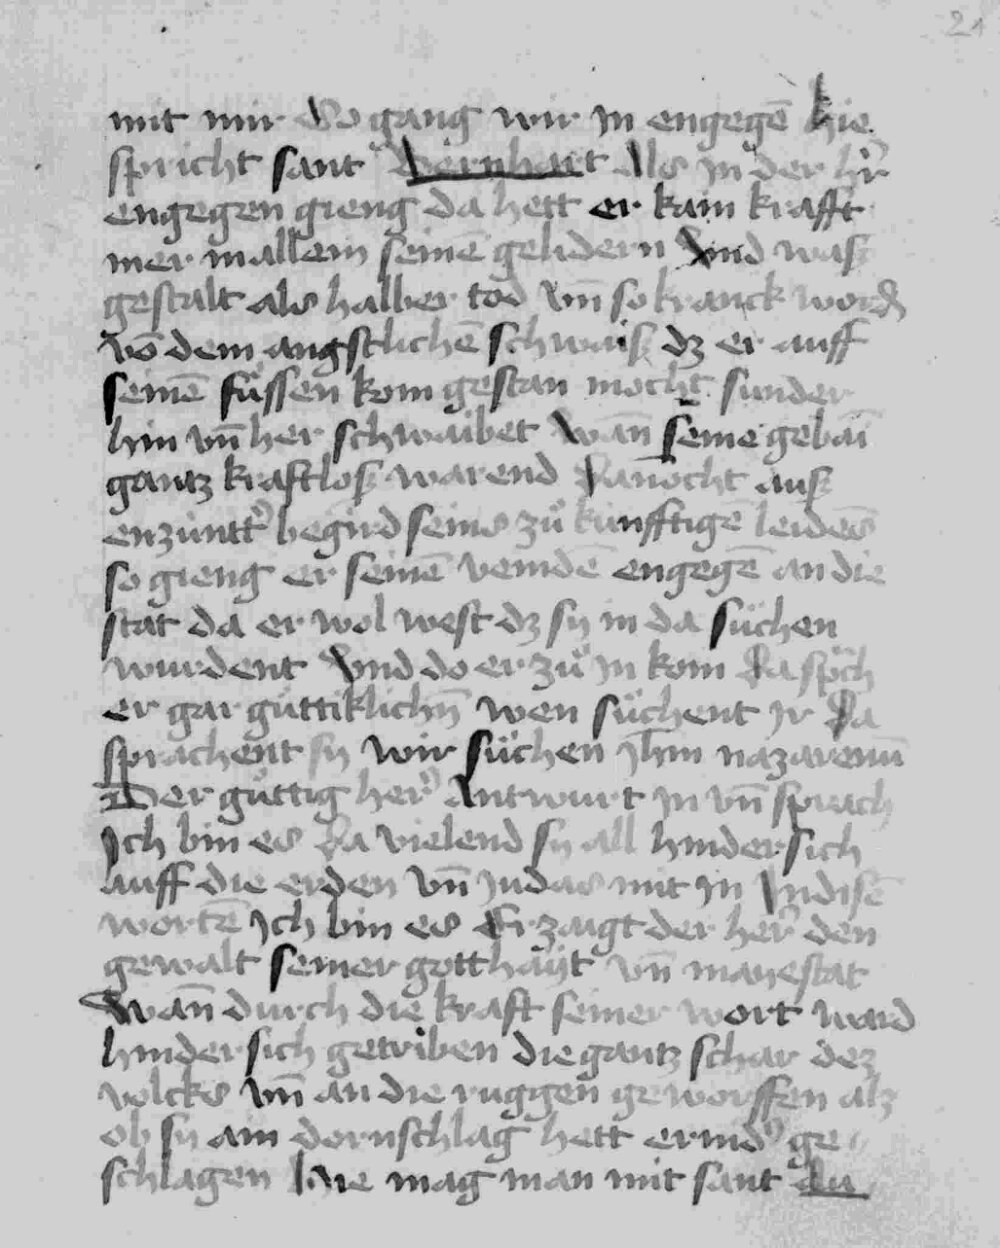 21
mit mir So gang wir in engegē hie
spricht sant Bernhart Als in der hr̄
engegen gieng da hett er kain krafft
mer in allem seinē gelidern Vnd was
gestalt als halber tod vn̄ so kranck word
vō dem angstlichē schwaiß dz er auff
seinē füssen kom gestan mocht sunder
hin vn̄ her schwaibet Wan̄ seine gebai
gantz kraftloß warend Danocht auß
enzuntt begird seins zů kunfftigē leidēs
so gieng er seinē veindē engegē an die
stat da er wol west dz sy in da süchen
wurdent Vnd do er zů in kom Da spch
er gar güttiklichn̄ wen süchent ir Da
sprachent sy wir süchen ihm nazarenū
Der güttig her Antwurt in vn̄ sprach
Ich bin es Da vielend sy all hinder sich
auff die erden vn̄ judas mit in In disē
wortē Ich bin es Erzaigt der her den
gewalt seiner gotthayt vn̄ mayestat
Wan̄ durch die kraft seiner wort ward
hinder sich getriben die gantz schar dez
volcks vn̄ an die ruggen geworffen alz
ob sy ain dornschlag hett ernid ge
schlagen hie mag man mit sant